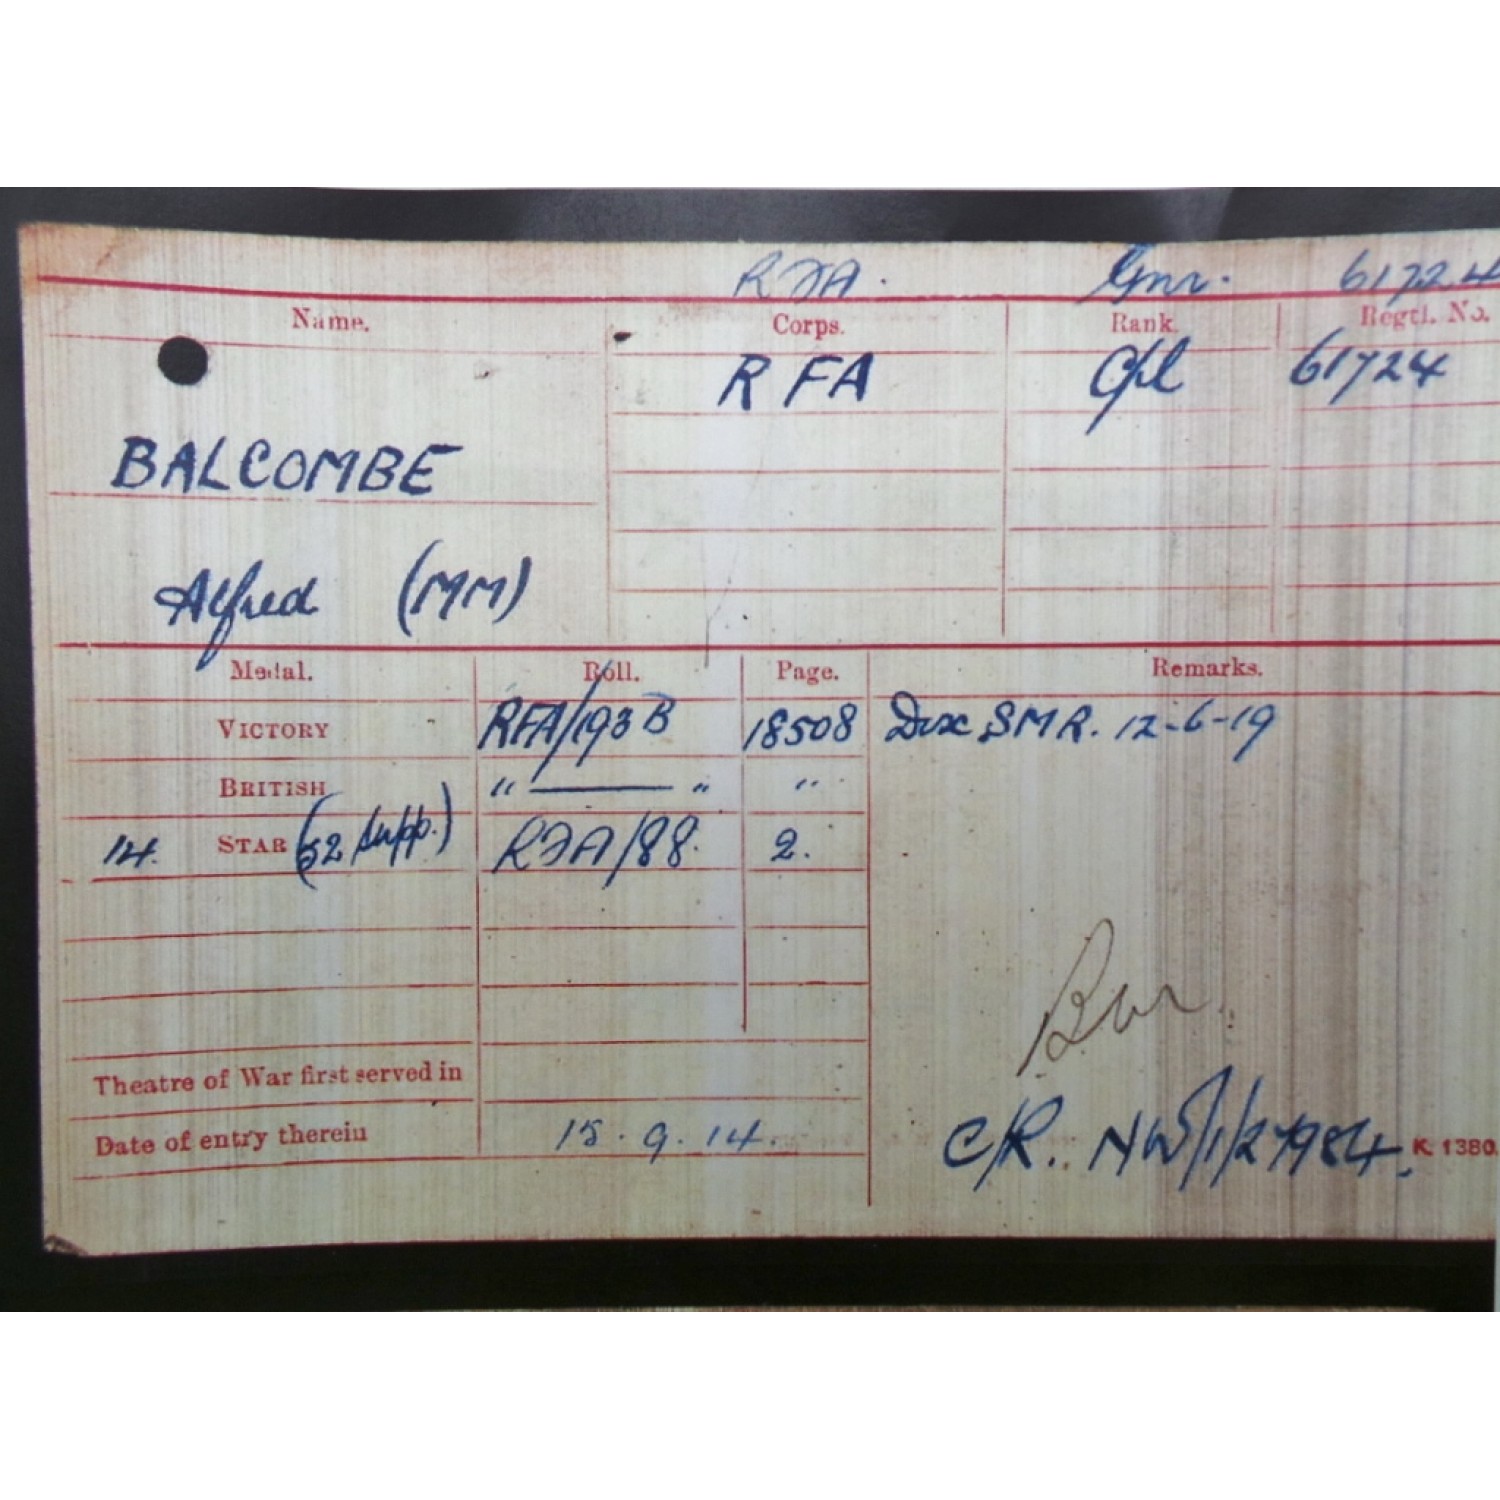 RFA. Gnr. 61724
Name. Corps. Rank. Regtl. No.
RFA Cpl 61724
BALCOMBE
Alfred (MM)
Medal. Roll. Page. Remarks.
VICTORY RFA/193B 18508 Disc SMR. 12-6-19
BRITISH " —— " "
14 STAR (52 Supp.) RFA/88. 2.
Theatre of War first served in
Date of entry therein 15.9.14.
C/R. NW/1/27984.
K. 1380.